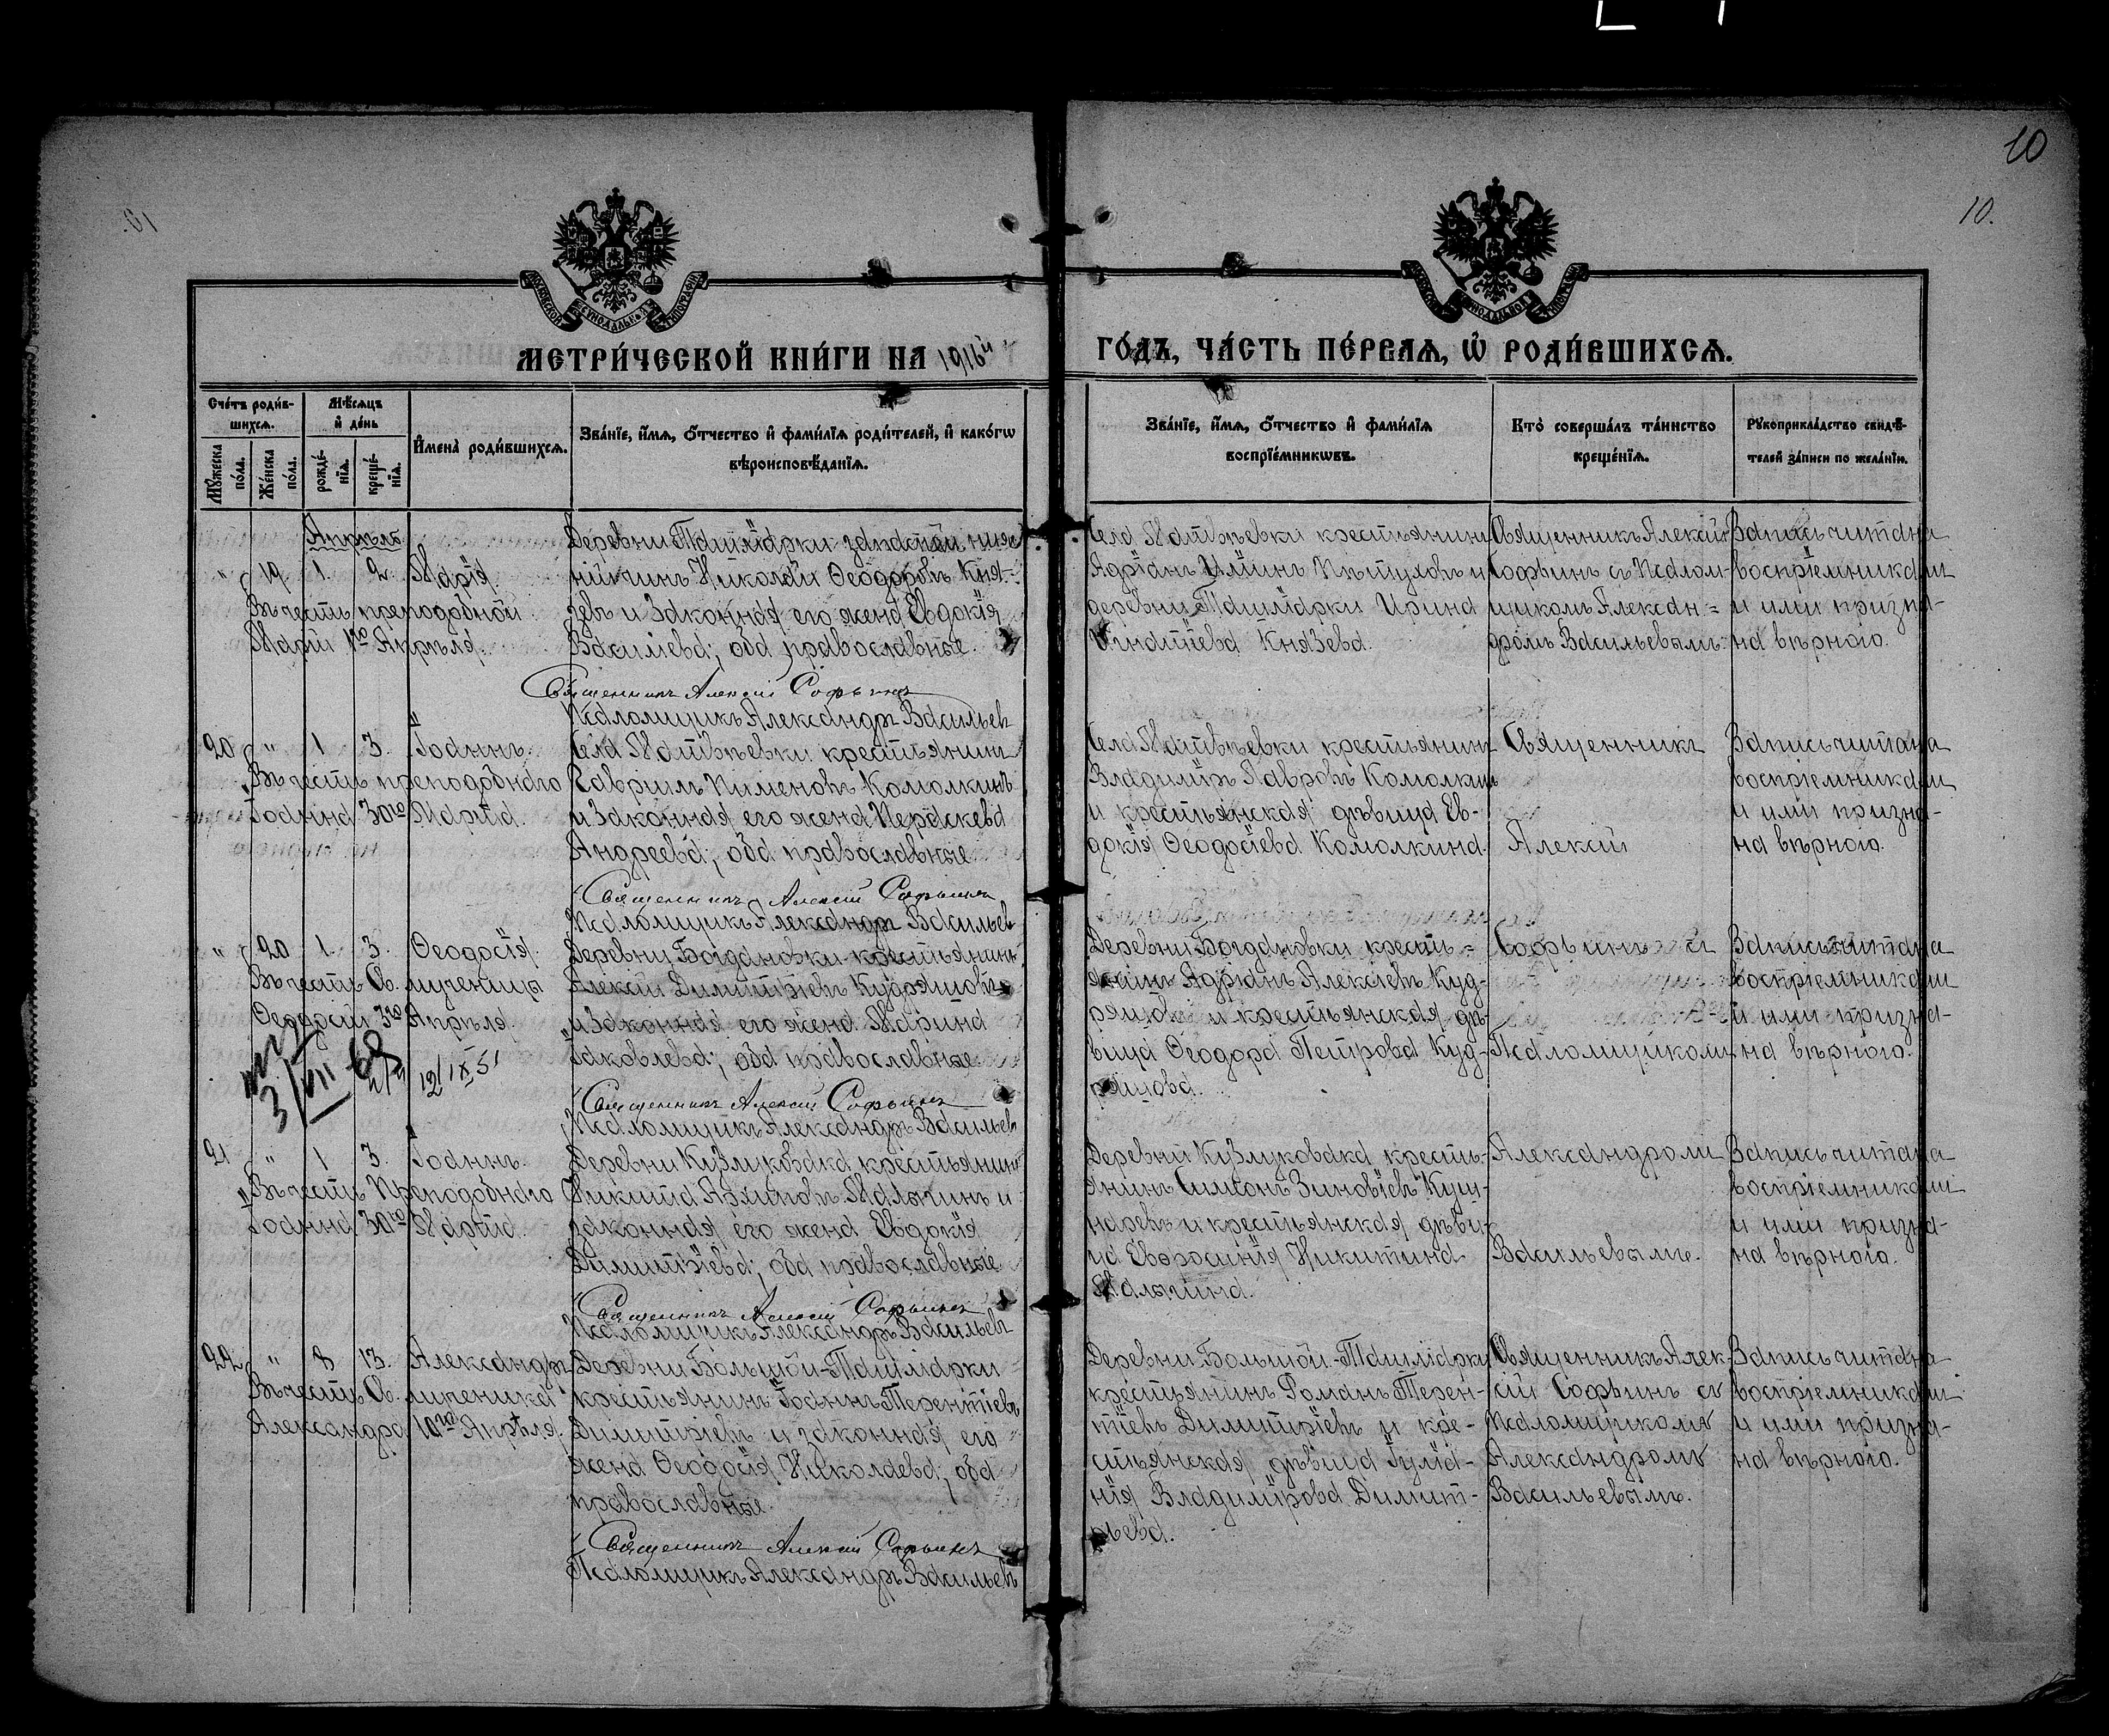 10
10.
МЕТРИ́ЧЕСКОЙ КНИ́ГИ НА 1916й
ГО́ДЪ, ЧА́СТЬ ПЕ́РВАѦ, Ѡ҆ РОДИ́ВШИХСѦ.
Сче́тъ роди́в-
шихсѧ.
Мѣ́сѧцъ
и҆ де́нь
Мꙋ́жеска по́ла.
Же́нска по́ла.
рожде́-
нїѧ.
креще́-
нїѧ.
И҆мена̀ роди́вшихсѧ.
Зва́нїе, и҆́мѧ, ѻ҆́тчество и҆ фами́лїѧ роди́телей, и҆ како́гѡ
вѣроисповѣ́данїѧ.
Зва́нїе, и҆́мѧ, ѻ҆́тчество и҆ фами́лїѧ
воспрїе́мникѡвъ.
Кто̀ соверша́лъ та́инство
креще́нїѧ.
Рꙋкоприкла́дство свидѣ́-
телей за́писи по жела́нїю.
Апрѣль
" 19 1. 2. Марія
Въ честь преподобной
Маріи 1го Апрѣля.
Деревни Ташлiарки запасной
Николай Ѳеодоровъ Кня-
зевъ и законная его жена Евдокія
Василіева; оба православные.
Священникъ Алексій Софьинъ
Псаломщикъ Александръ Васильевъ
Села Матвѣевки крестьянинъ
Адріанъ Ильинъ Пѣтуловъ и
деревни Ташлiарки Ирина
Князева.
Священникъ Алексій
Софьинъ съ Псалом-
щикомъ Алексан-
дромъ Васильевымъ.
Запись читана
воспріемниками
и ими призна-
на вѣрною.
20 " 1 3. Іоаннъ.
Въ честь преподобнаго
Іоанна 30го Марта.
Села Матвѣевки крестьянинъ
Гавріилъ Пименовъ Комолкинъ
и законная его жена Параскева
Андреева; оба православные.
Священникъ Алексій Софьинъ
Псаломщикъ Александръ Васильевъ
Села Матвѣевки крестьянинъ
Владиміръ Лавровъ Комолкинъ
и крестьянская дѣвица Ев-
докія Ѳеодосіева Комолкина.
Священникъ
Алексій
Запись читана
воспріемниками
и ими призна-
на вѣрною.
" 20 1. 3. Ѳеодосія.
Въ честь Св. мученицы
Ѳеодосіи 3го Апрѣля.
3/VII 69
12/IX 51
Деревни Богдановки крестьянинъ
Алексій Димитріевъ Кудряшовъ
и законная его жена Марина
Іаковлева; оба православные.
Священникъ Алексій Софьинъ
Псаломщикъ Александръ Васильевъ
Деревни Богдановки кресть-
янинъ Адріанъ Алексіевъ Куд-
ряшовъ и крестьянская дѣ-
вица Ѳеодора Петрова Куд-
ряшова.
Софьинъ съ
Псаломщикомъ
Запись читана
воспріемниками
и ими призна-
на вѣрною.
21 " 1 3. Іоаннъ.
Въ честь Преподобнаго
Іоанна 30го Марта.
Деревни Кузлуковака крестьянинъ
Никита Малыгинъ и
законная его жена Евдокія
Димитріева; оба православные.
Священникъ Алексій Софьинъ
Псаломщикъ Александръ Васильевъ
Деревни Кузлуковака кресть-
янинъ Симеонъ Зиновіевъ Куш-
наревъ и крестьянская дѣви-
ца Евфросинія Никитина
Малыгина.
Александромъ
Васильевымъ.
Запись читана
воспріемниками
и ими призна-
на вѣрною.
22 " 8 13. Александръ
Въ честь Св. мученика
Александра 10го Апрѣля.
Деревни Большой-Ташлiарки
крестьянинъ Іоаннъ Терентіевъ
Димитріевъ и законная его
жена Ѳеодосія Николаева; оба
православные.
Священникъ Алексій Софьинъ
Псаломщикъ Александръ Васильевъ
Деревни Большой-Ташлiарки
крестьянинъ Романъ Терен-
тіевъ Димитріевъ и кре-
стьянская дѣвица Іуліа-
нія Владимірова Димит-
рьева.
Священникъ Алек-
сій Софьинъ съ
Псаломщикомъ
Александромъ
Васильевымъ.
Запись читана
воспріемниками
и ими призна-
на вѣрною.